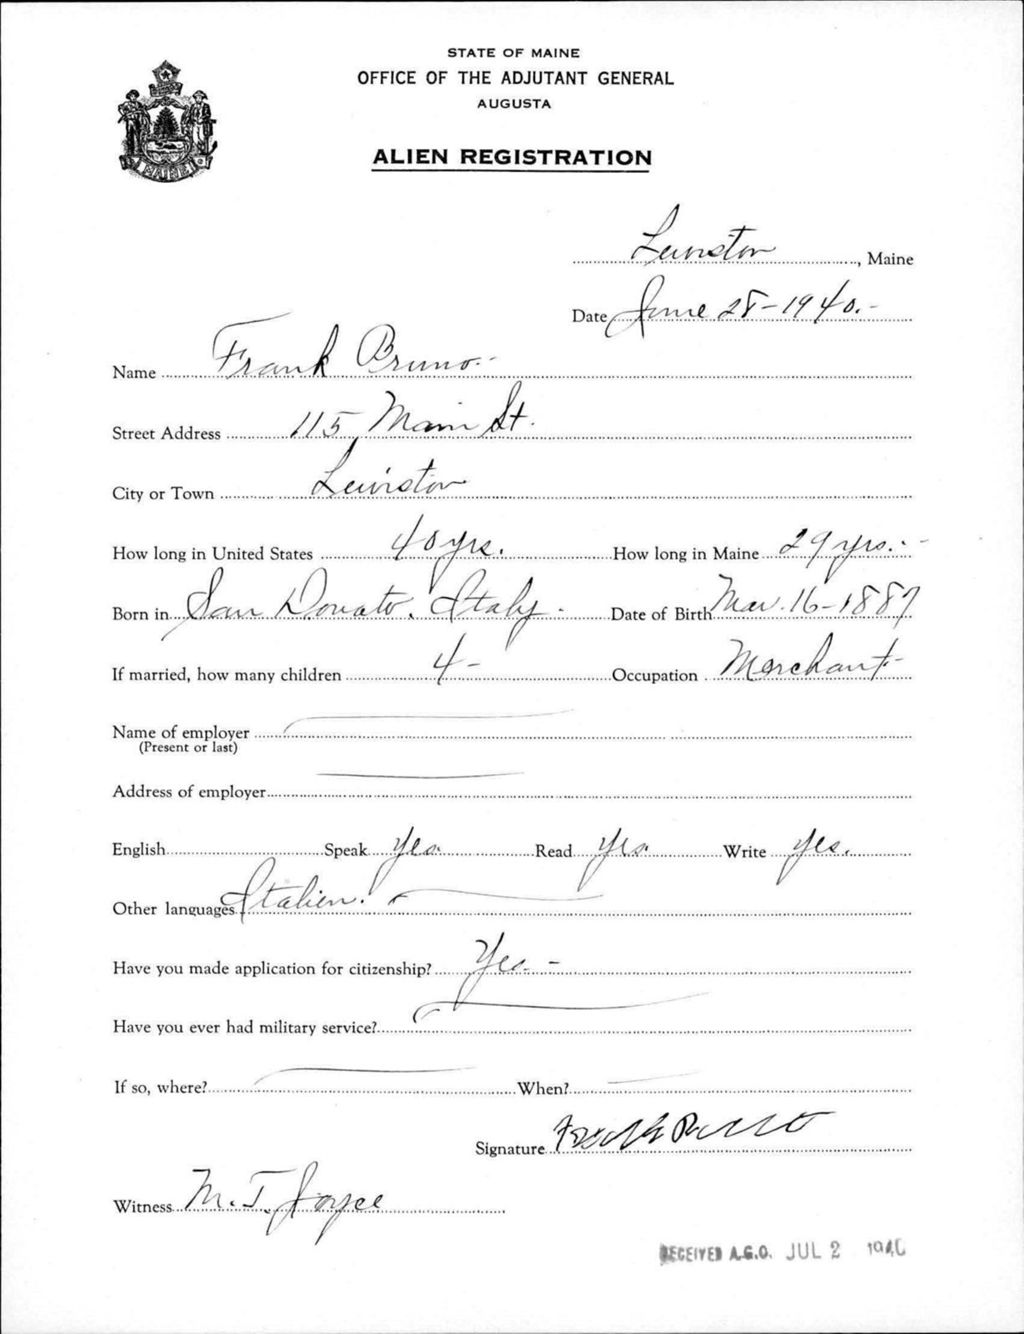 STATE OF MAINE
OFFICE OF THE ADJUTANT GENERAL
AUGUSTA
ALIEN REGISTRATION
MAINE
Lewiston, Maine
Date June 28-1940.-
Name Frank Bruno.-
Street Address 115 Main St.
City or Town Lewiston
How long in United States 40 yrs. How long in Maine 29 yrs.-
Born in San Donato. Italy. Date of Birth Mar. 16-1887
If married, how many children 4- Occupation Merchant-
Name of employer
(Present or last)
Address of employer
English Speak Yes. Read Yes. Write Yes.
Other languages Italien.
Have you made application for citizenship? Yes.-
Have you ever had military service?
If so, where? When?
Signature Frank Bruno
Witness M. T. Joyce
RECEIVED A.G.O. JUL 2 1940